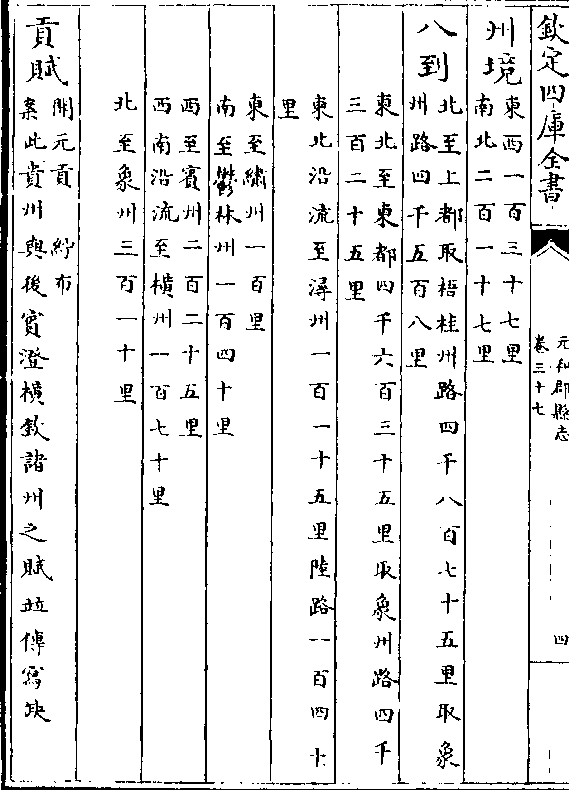 欽定四庫全書
元和郡縣志
卷三十七
四
州境
東西一百三十七里
南北二百一十七里
八到
北至上都取梧桂州路四千八百七十五里取象
州路四千五百八里
東北至東都四千六百三十五里取象州路四千
三百二十五里
東北沿流至潯州一百一十五里陸路一百四十
里
東至繡州一百里
南至鬱林州一百四十里
西至賓州二百二十五里
西南沿流至橫州一百七十里
北至象州三百一十里
貢賦
開元貢 紵布
案此貴州與後賓澄橫欽諸州之賦並傳寫缺